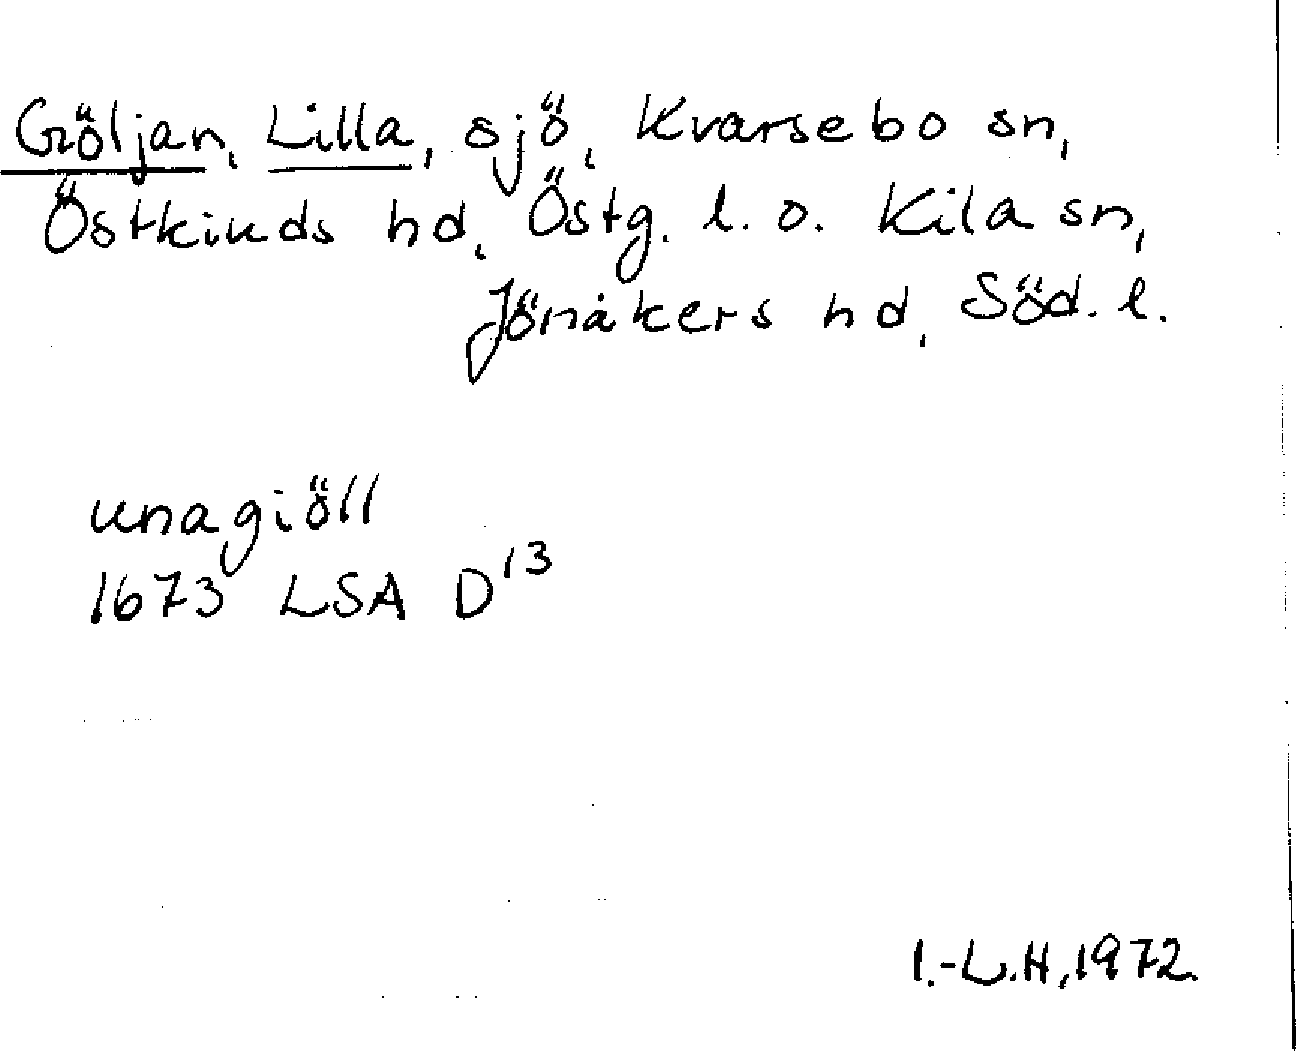 Göljan, Lilla, sjö, Kvarsebo sn,
Östkinds hd, Östg. l. o. Kila sn,
Jönåkers hd, Söd. l.
unagiöll
1673 LSA D13
I.-L.H, 1972.